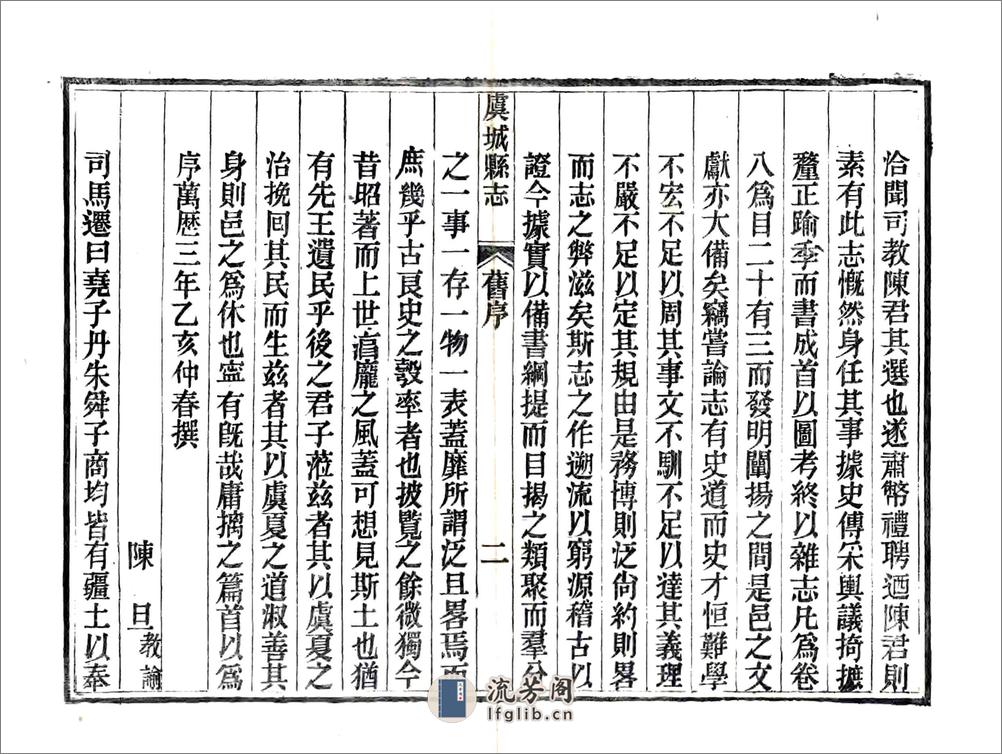 洽聞司教陳君其選也遂肅幣禮聘迺陳君則
素有此志慨然身任其事據史傅采輿議掎摭
釐正踰季而書成首以圖考終以雜志凡為卷
八為目二十有三而發明闡揚之間是邑之文
獻亦大備矣竊嘗論志有史道而史才恒難學
不宏不足以周其事文不馴不足以達其義理
不嚴不足以定其規由是務博則泛尙約則畧
而志之弊滋矣斯志之作遡流以窮源稽古以
證今據實以備書綱提而目揭之類聚而羣分
虞城縣志
舊序
二
之一事一存一物一表蓋靡所謂泛且畧焉而
庶幾乎古良史之彀率者也披覽之餘微獨今
昔昭著而上世湻龐之風蓋可想見斯土也猶
有先王遺民乎後之君子蒞兹者其以虞夏之
治挽囘其民而生兹者其以虞夏之道淑善其
身則邑之為休也寧有旣哉庸摛之篇首以為
序萬歷三年乙亥仲春撰
陳 旦 教諭
司馬遷曰堯子丹朱舜子商均皆有疆土以奉
流芳阁
lfglib.cn